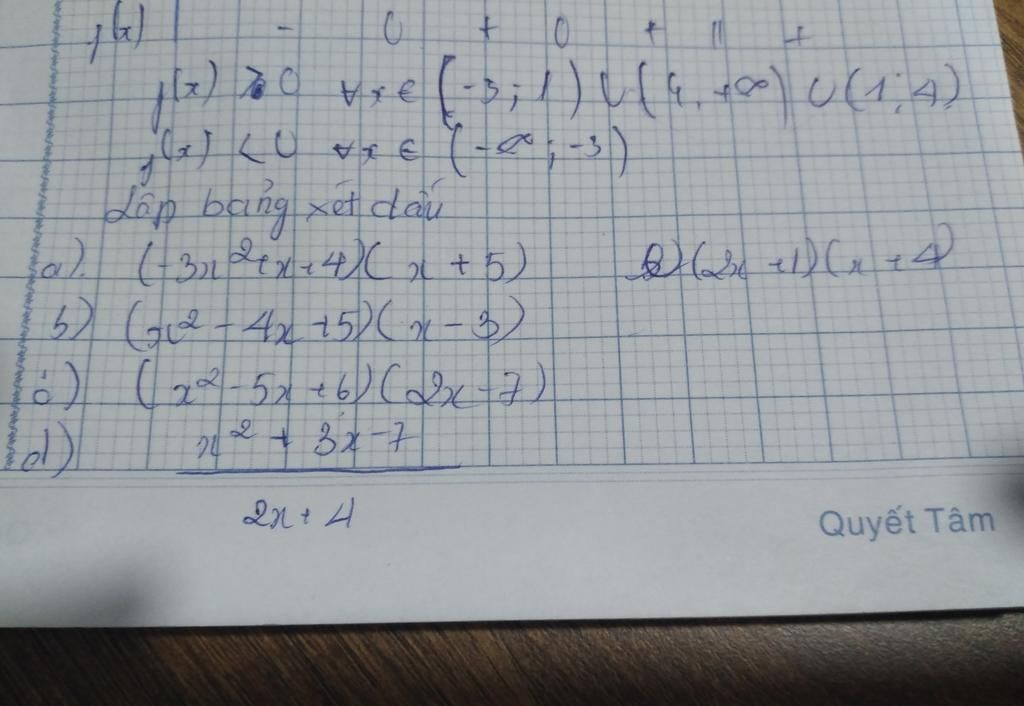 f(x) - 0 + 0 + || +
f(x) > 0 ∀x ∈ (-3; 1) ∪ (4, +∞) ∪ (1; 4)
f(x) < 0 ∀x ∈ (-∞; -3)
Lập bảng xét dấu
a). (-3x²+x+4)(x+5) e) (2x+1)(x+4)
b) (x²-4x+5)(x-3)
c) (x²-5x+6)(2x-7)
d) x² + 3x-7
2x+4
Quyết Tâm